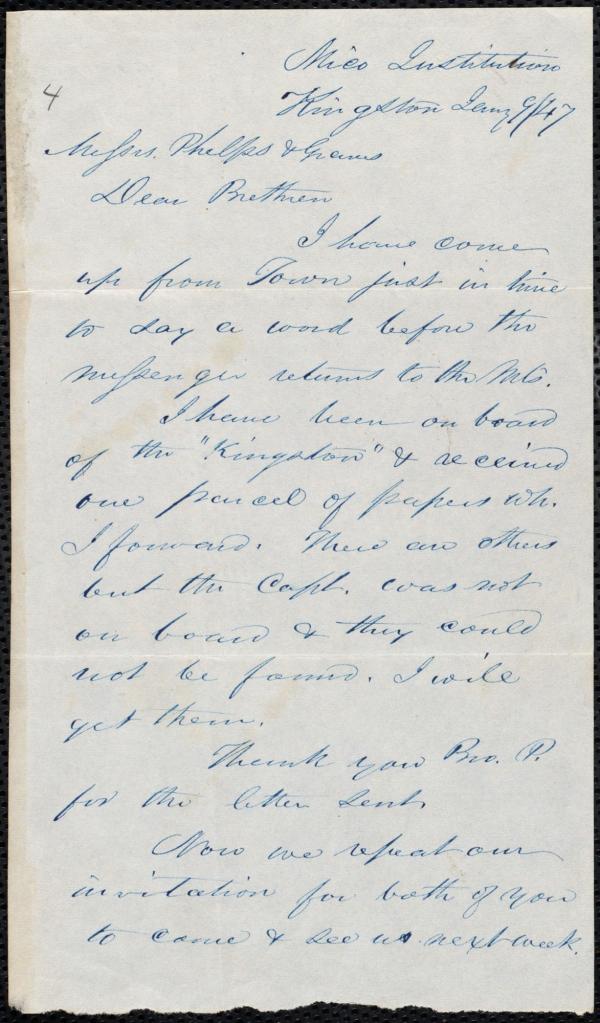 Mico Institution
Kingston Jany 9/47
4
Messrs. Phelps & Graves
Dear Brethren
I have come
up from Town just in time
to say a word before the
messenger returns to the Mts.
I have been on board
of the "Kingston" & received
one parcel of papers wh.
I forward. There are others
but the Capt. was not
on board & they could
not be found. I will
get them.
Thank you Bro. P.
for the letter sent.
Now we repeat our
invitation for both of you
to come & see us next week.